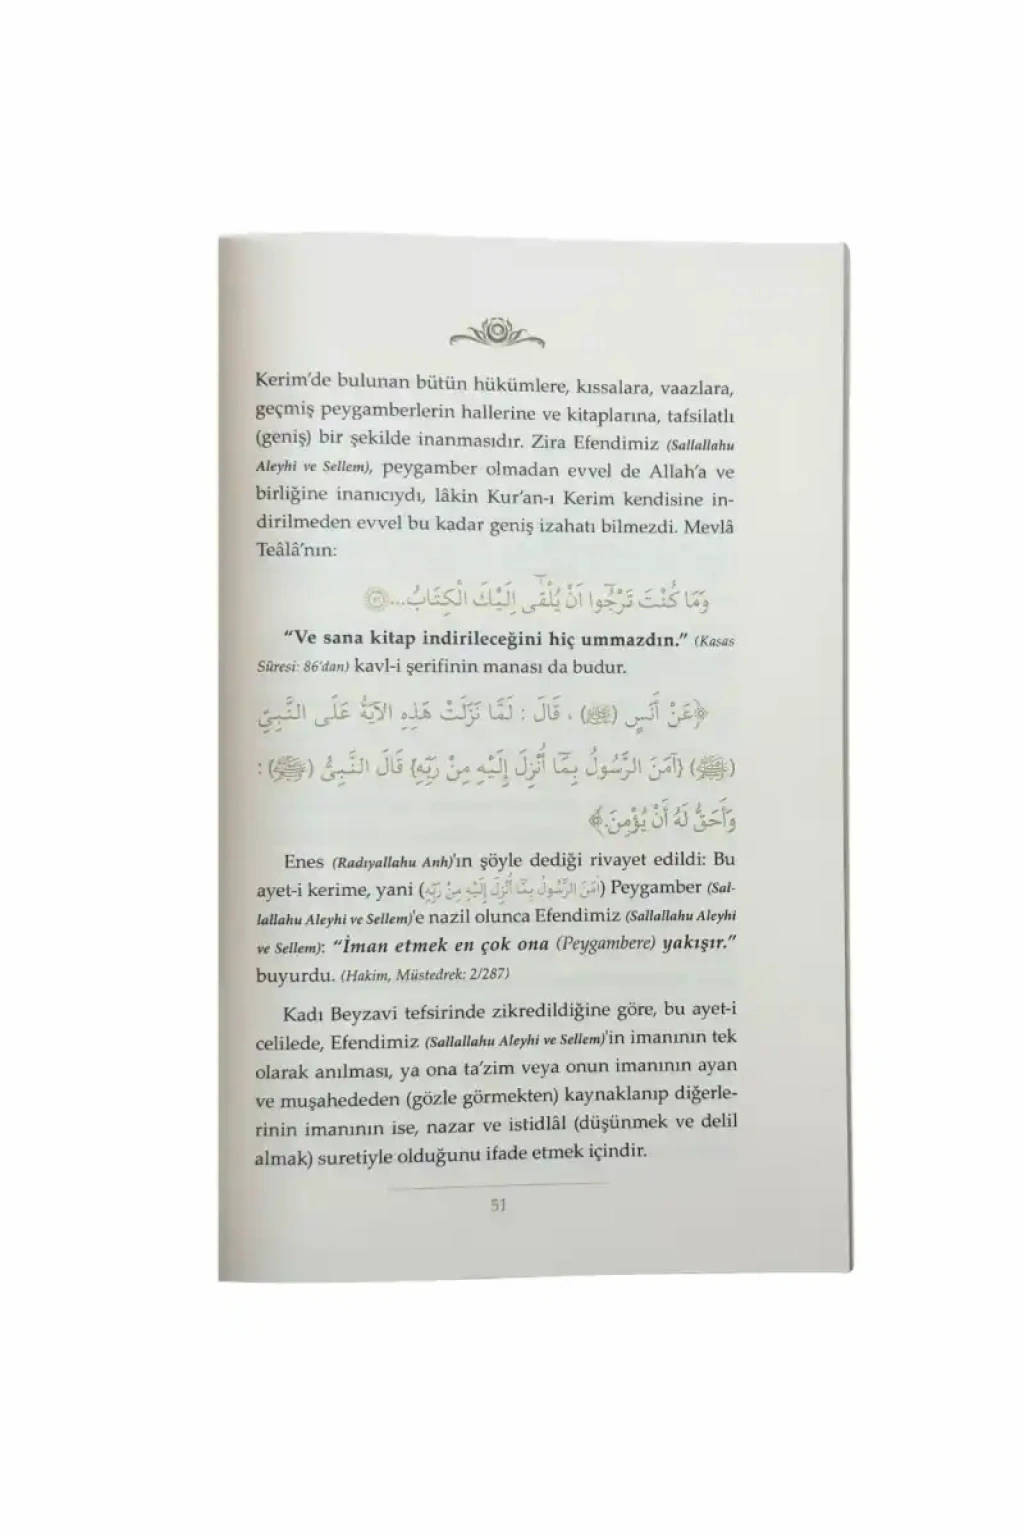 Kerim'de bulunan bütün hükümlere, kıssalara, vaazlara,
geçmiş peygamberlerin hallerine ve kitaplarına, tafsilatlı
(geniş) bir şekilde inanmasıdır. Zira Efendimiz (Sallallahu
Aleyhi ve Sellem), peygamber olmadan evvel de Allah'a ve
birliğine inanıcıydı, lâkin Kur'an-ı Kerim kendisine in-
dirilmeden evvel bu kadar geniş izahatı bilmezdi. Mevlâ
Teâlâ'nın:
وَمَا كُنْتَ تَرْجُٓوا اَنْ يُلْقٰٓى اِلَيْكَ الْكِتَابُ...﴿٨٦﴾
“Ve sana kitap indirileceğini hiç ummazdın.” (Kasas
Sûresi: 86'dan) kavl-i şerifinin manası da budur.
﴿عَنْ أَنَسٍ (ﷺ) ، قَالَ : لَمَّا نَزَلَتْ هَذِهِ الآيَةُ عَلَى النَّبِيِّ
(ﷺ) {آمَنَ الرَّسُولُ بِمَٓا أُنْزِلَ إِلَيْهِ مِنْ رَبِّهِ} قَالَ النَّبِيُّ (ﷺ) :
وَأَحَقُّ لَهُ أَنْ يُؤْمِنَ.﴾
Enes (Radıyallahu Anh)'ın şöyle dediği rivayet edildi: Bu
ayet-i kerime, yani (آمَنَ الرَّسُولُ بِمَٓا أُنْزِلَ إِلَيْهِ مِنْ رَبِّهِ) Peygamber (Sal-
lallahu Aleyhi ve Sellem)'e nazil olunca Efendimiz (Sallallahu Aleyhi
ve Sellem): “İman etmek en çok ona (Peygambere) yakışır.”
buyurdu. (Hakim, Müstedrek: 2/287)
Kadı Beyzavi tefsirinde zikredildiğine göre, bu ayet-i
celilede, Efendimiz (Sallallahu Aleyhi ve Sellem)'in imanının tek
olarak anılması, ya ona ta'zim veya onun imanının ayan
ve muşahededen (gözle görmekten) kaynaklanıp diğerle-
rinin imanının ise, nazar ve istidlâl (düşünmek ve delil
almak) suretiyle olduğunu ifade etmek içindir.
51